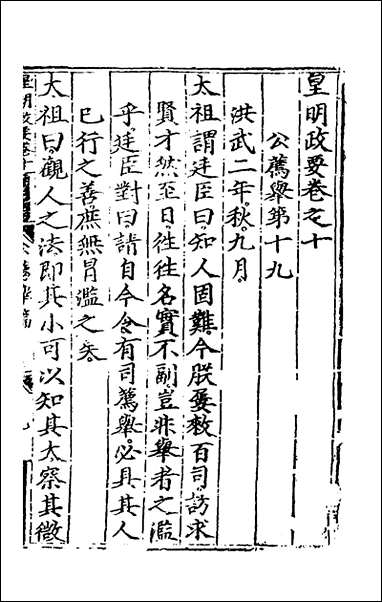 皇明政要卷之十
公薦舉第十九
洪武二年秋九月
太祖謂廷臣曰知人固難今朕屢敕百司訪求
賢才然至日徃徃名實不副豈非舉者之濫
乎廷臣對曰請自今令有司薦舉必具其人
已行之善庶無冐濫之失
太祖曰觀人之法即其小可以知其大察其微
皇明政要卷十